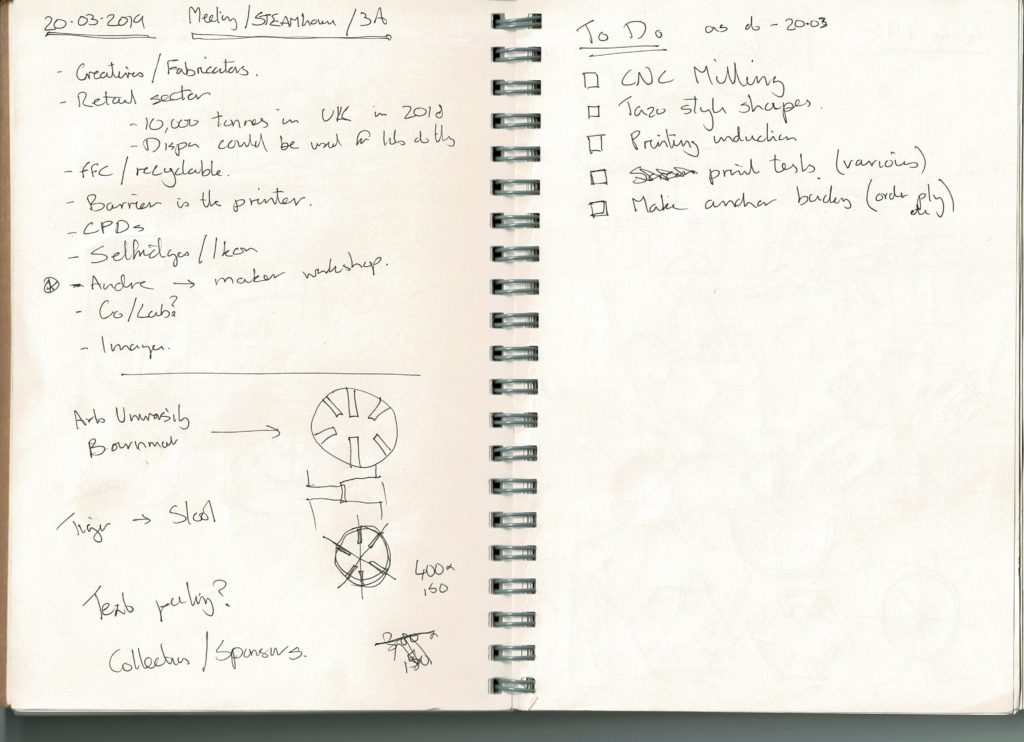 20.03.2019 Meeting/STEAMhouse/3A
- Creatives/Fabricators.
- Retail sector
- 10,000 tonnes in UK in 2018
- could be used
- FFC/recyclable.
- Barrier is the printer.
- CPDs
- Selfridges/Ikon
- Andre → maker workshop.
- Co/Lab?
- Imager.
Arts University
Bournmouth
→ Stool
400 x
150
Collectors/Sponsors.
150
To Do as of - 20.03
CNC Milling
Tazo style shapes.
Printing induction
print tests. (various)
Make anchor (order ply